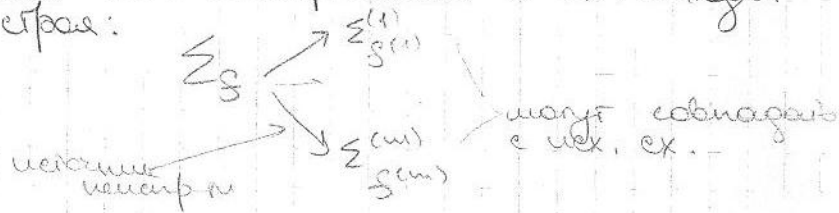 строя:
Σ_S → Σ^{(1)}_{S^{(1)}}
Σ^{(m)}_{S^{(m)}}
могут совпадать
с исх. сх.
источник
неиспр-ти